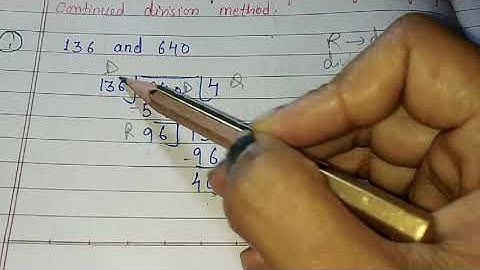 Continued division method.
① 136 and 640
R →
D
136 4 Q
- 5
R 96 1
- 96
4